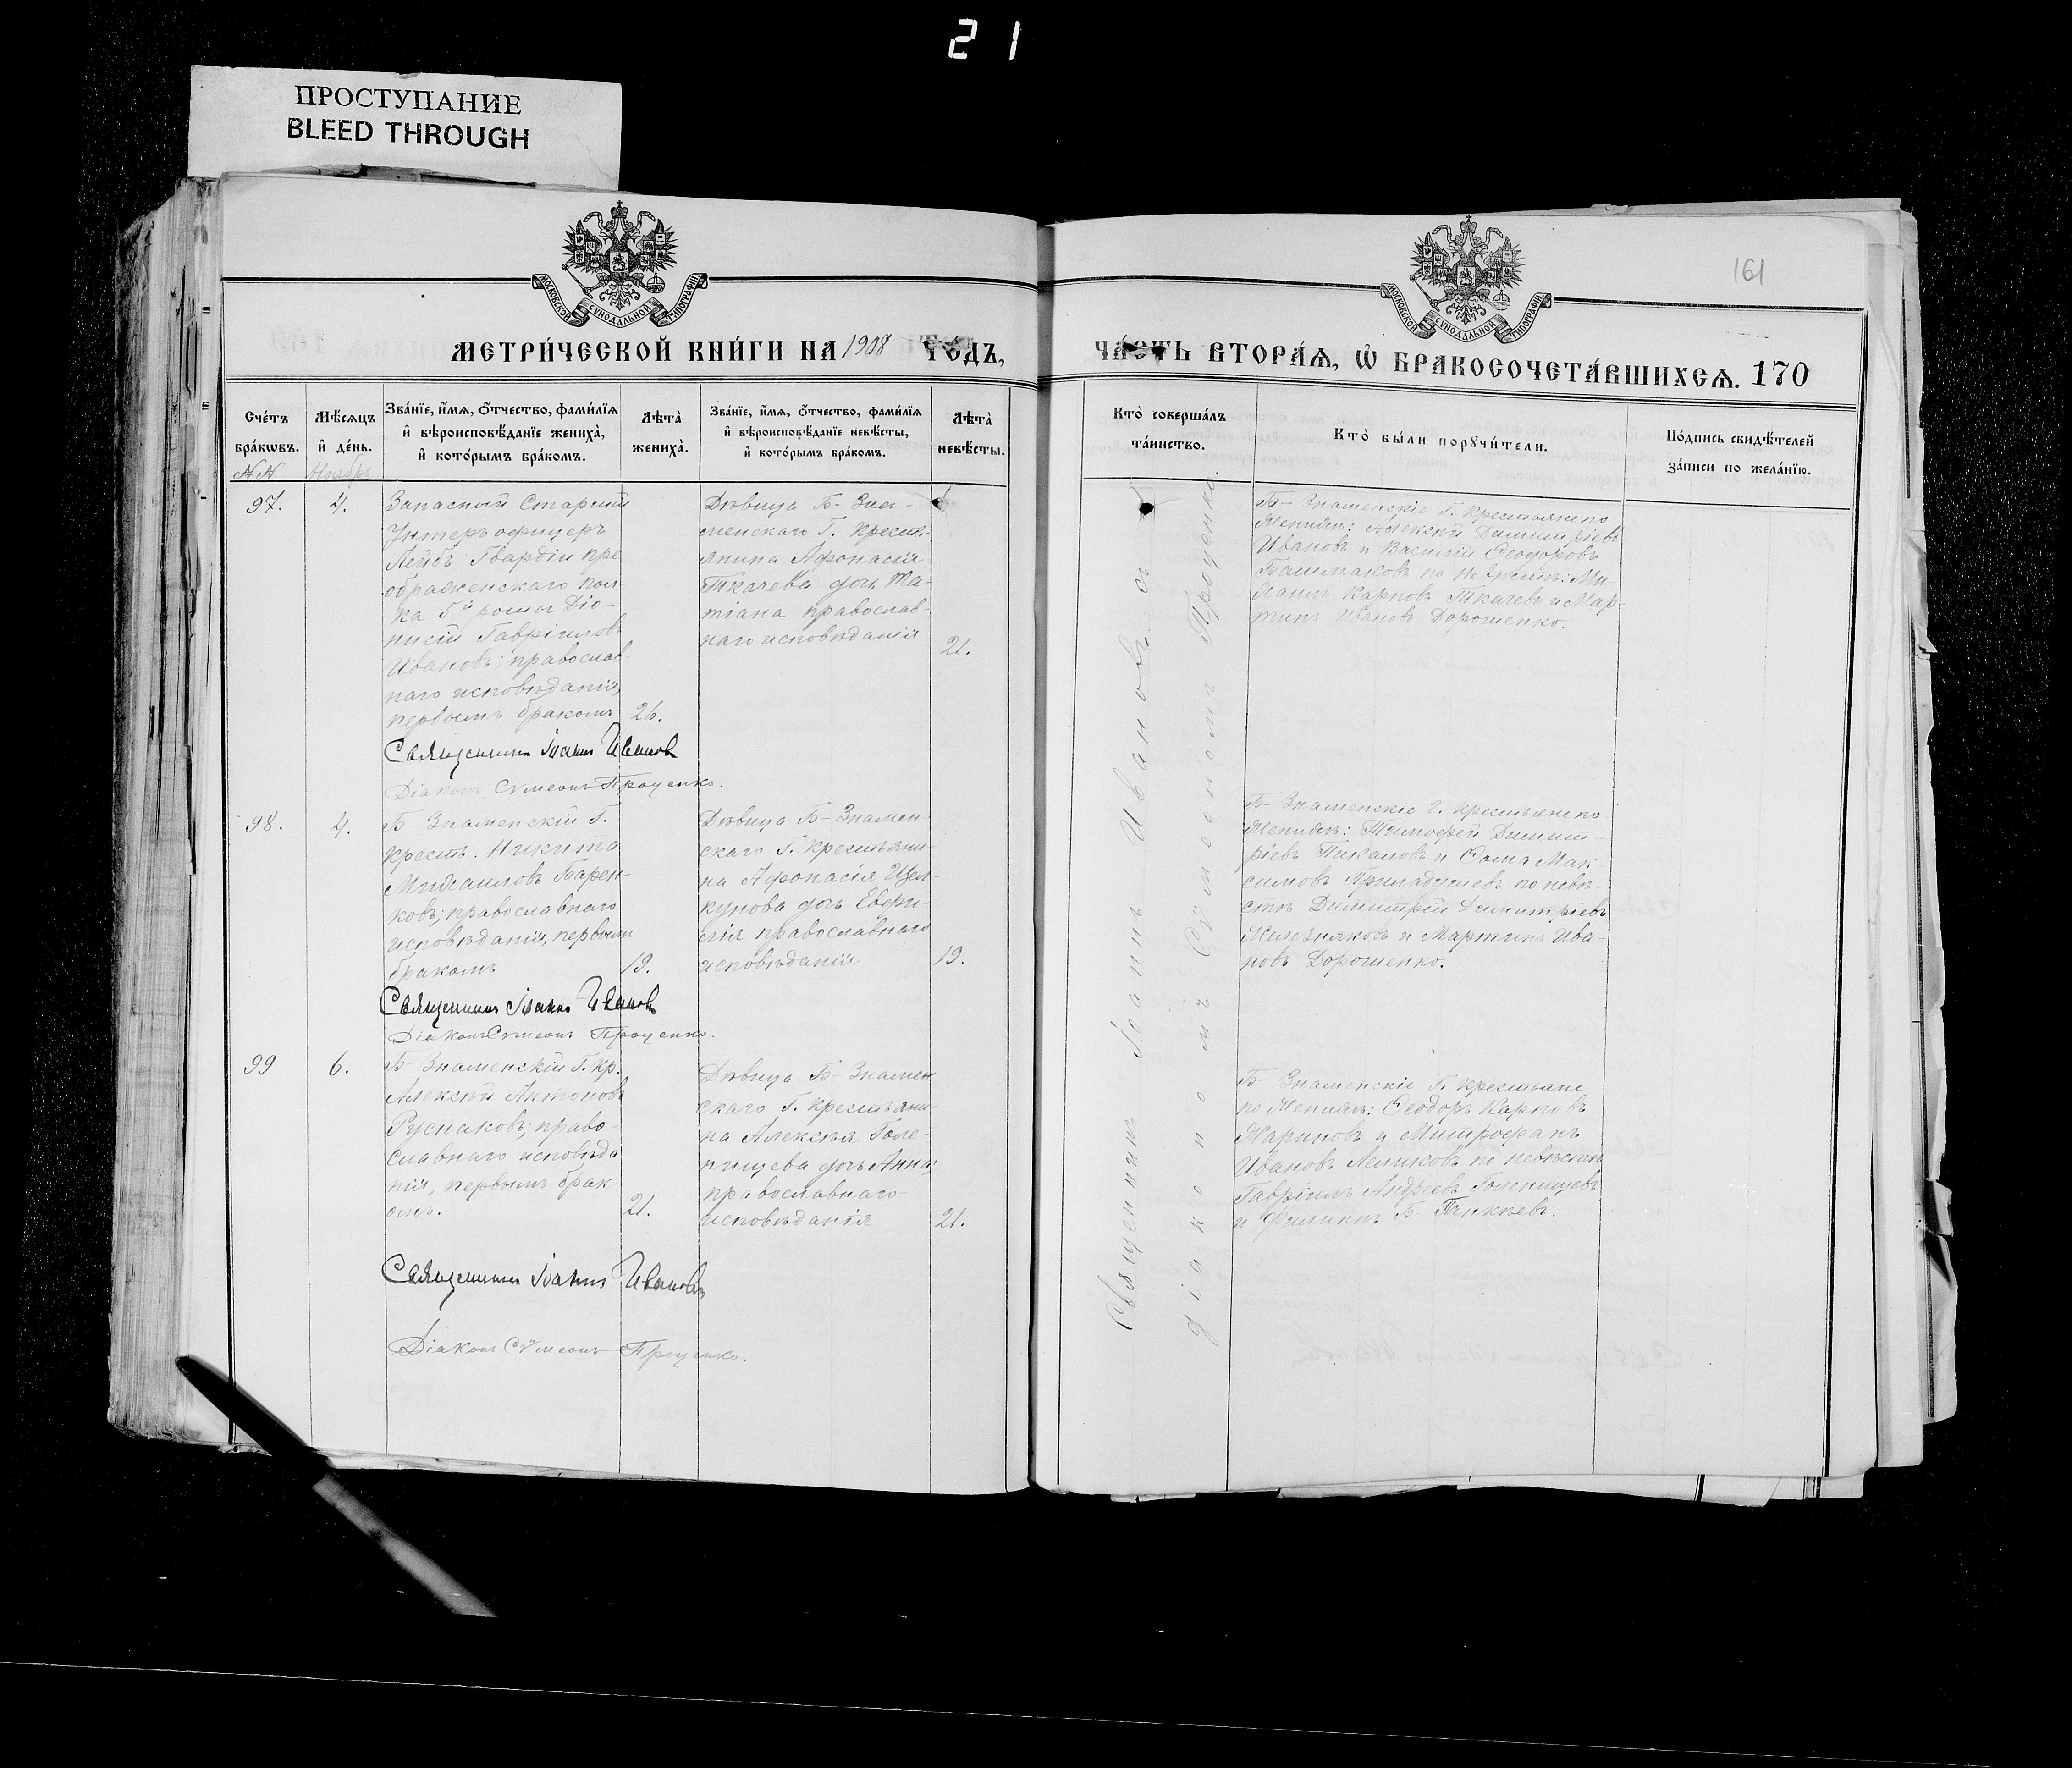 21
ПРОСТУПАНИЕ
BLEED THROUGH
МОСКОВСКОЙ СѴНОДАЛЬНОЙ ТИПОГРАФІИ
МОСКОВСКОЙ СѴНОДАЛЬНОЙ ТИПОГРАФІИ
161
МЕТРИ́ЧЕСКОЙ КНИ́ГИ НА 1908 ГО́ДЪ,
ЧА́СТЬ ВТОРА́Ѧ, Ѡ҆ БРАКОСОЧЕТА́ВШИХСѦ. 170
Сче́тъ бра́кѡвъ.
Мѣ́сяцъ и҆ де́нь.
Зва́нїе, и҆́мѧ, ѻ҆́тчество, фами́лїѧ
и҆ вѣроисповѣ́данїе жениха̀,
и҆ кото́рымъ бра́комъ.
Лѣта̀ жениха̀.
Зва́нїе, и҆́мѧ, ѻ҆́тчество, фами́лїѧ
и҆ вѣроисповѣ́данїе невѣ́сты,
и҆ кото́рымъ бра́комъ.
Лѣта̀ невѣ́сты.
Кто̀ соверша́лъ
та́инство.
Кто̀ бы́ли порꙋчи́тели.
По́дпись свидѣ́телей
за́писи по жела́нїю.
NN
Ноябрь
97.
4.
Запасный Старшій
Унтеръ офицеръ
Лейбъ Гвардіи пре
ображенскаго пол-
ка 5й роты Діо-
нисій Гавріиловъ
Ивановъ; православ-
наго исповѣданія,
первымъ бракомъ
26.
Священникъ Іоаннъ Ивановъ
Діаконъ Сѵмеонъ Проценко.
Дѣвица Б-Зна-
менскаго Г. крестъ-
янина Афонасія
Ткачева дочь Та-
тіана православ-
наго исповѣданія
21.
Б-Знаменскіе Г. крестьяне по
Женихѣ: Алексѣй Димитріевъ
Ивановъ и Василій Ѳеодоровъ
Башмаковъ по Невѣстѣ: Ми-
хаилъ Карповъ Ткачевъ и Мар-
тинъ Ивановъ Дорошенко.
98.
4.
Б-Знаменскій Г.
крест. Никита
Михаиловъ Барен-
ковъ; православнаго
исповѣданія, первымъ
бракомъ
19.
Священникъ Іоаннъ Ивановъ
Діаконъ Сѵмеонъ Проценко.
Дѣвица Б-Знамен-
скаго Г. крестьяни-
на Афонасія
дочь
православнаго
исповѣданія
19.
Б-Знаменскіе Г. крестьяне по
Женихѣ: Тимофей Димит-
ріевъ и Ѳома Мак-
симовъ по невѣ-
стѣ Димитрій Димитріевъ
Железняковъ и Мартинъ Ива-
новъ Дорошенко.
99
6.
Б-Знаменскій Г. кр.
Алексѣй Антоновъ
Руснаковъ; право-
славнаго исповѣда
нія, первымъ брак-
омъ.
21.
Священникъ Іоаннъ Ивановъ
Діаконъ Сѵмеонъ Проценко.
Дѣвица Б-Знамен
скаго Г. крестьяни-
на Алексѣя Голе-
нищева дочь Анна;
православнаго
исповѣданія
21.
Б-Знаменскіе Г. крестьяне
по Женихѣ: Ѳеодоръ Карповъ
Мариновъ и Митрофанъ
Ивановъ по невѣстѣ
Гавріилъ Андреевъ Голенищевъ
и Филиппъ Б-
Священникъ Іоаннъ Ивановъ съ
діакономъ Сѵмеономъ Проценко.